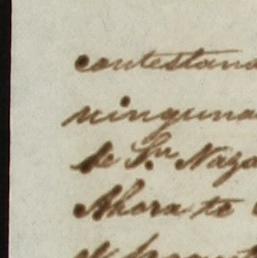 contestand
ninguna
de Sn Naza
Ahora te